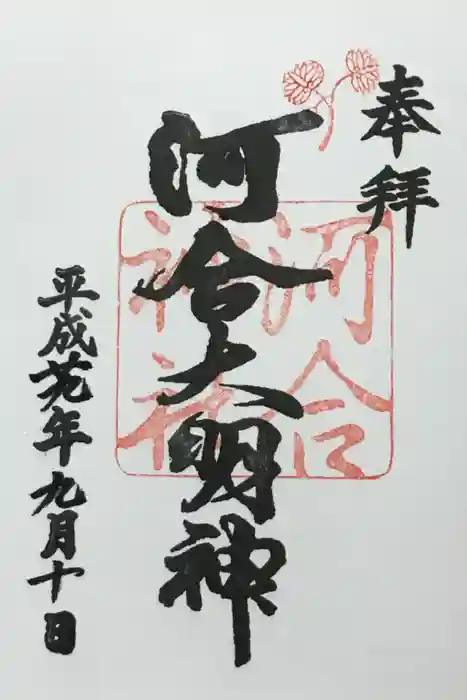 奉拝
河合大明神
河合
神社
平成廿九年九月十日